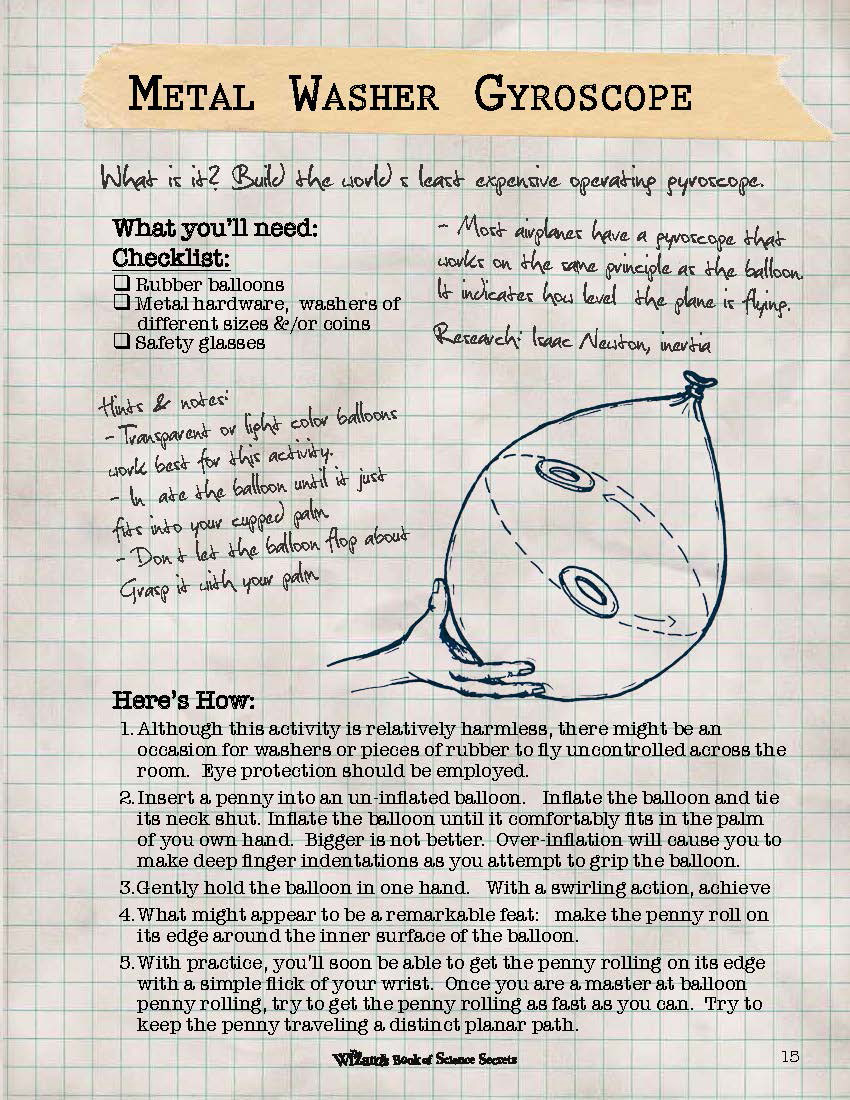 Metal Washer Gyroscope
What is it? Build the world s least expensive operating gyroscope.
What you'll need:
Checklist:
❑ Rubber balloons
❑ Metal hardware, washers of
different sizes &/or coins
❑ Safety glasses
- Most airplanes have a gyroscope that
works on the same principle as the balloon.
It indicates how level the plane is flying.
Research: Isaac Newton, inertia
Hints & notes:
- Transparent or light color balloons
work best for this activity.
- In ate the balloon until it just
fits into your cupped palm
- Don t let the balloon flop about
Grasp it with your palm
Here's How:
1. Although this activity is relatively harmless, there might be an
occasion for washers or pieces of rubber to fly uncontrolled across the
room. Eye protection should be employed.
2. Insert a penny into an un-inflated balloon. Inflate the balloon and tie
its neck shut. Inflate the balloon until it comfortably fits in the palm
of you own hand. Bigger is not better. Over-inflation will cause you to
make deep finger indentations as you attempt to grip the balloon.
3. Gently hold the balloon in one hand. With a swirling action, achieve
4. What might appear to be a remarkable feat: make the penny roll on
its edge around the inner surface of the balloon.
5. With practice, you'll soon be able to get the penny rolling on its edge
with a simple flick of your wrist. Once you are a master at balloon
penny rolling, try to get the penny rolling as fast as you can. Try to
keep the penny traveling a distinct planar path.
Wizard's Book of Science Secrets
15